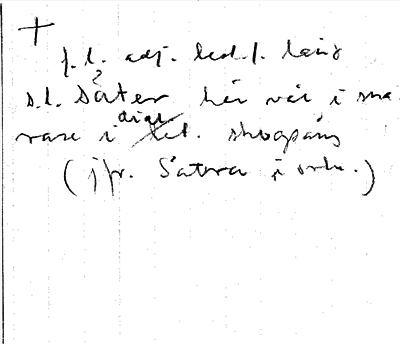 +
f. l. adj. led. f. lång
s. l. Säter här väl i sma
rare i dial. skogsäng
(jfr. Sätra i ortn.)